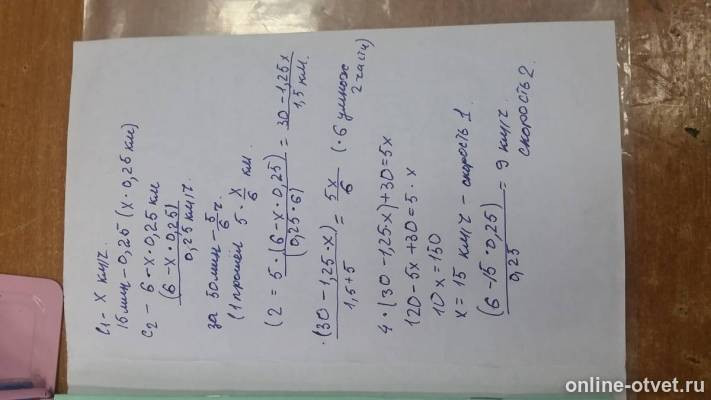 C1 - X км/ч.
15 мин - 0,25 (x · 0,25 км)
C2 - 6 - x · 0,25 км
(6 - x · 0,25)
0,25 км/ч.
за 50 мин - 5/6 ч.
(1 прошёл 5 · x/6 км.
(2 = 5 · (6 - x · 0,25) / (0,25 · 6) = 30 - 1,25x / 1,5 км.
· (30 - 1,25 · x) / 1,5 + 5 = 5x/6 (· 6 умнож
2 части)
4 · (30 - 1,25 · x) + 30 = 5x
120 - 5x + 30 = 5 · x
10x = 150
x = 15 км/ч - скорость 1
(6 - 15 · 0,25) / 0,25 = 9 км/ч.
скорость 2.
online-otvet.ru